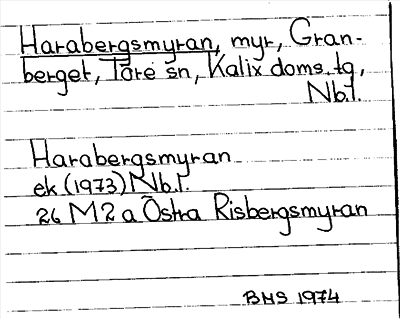 Harabergsmyran, myr, Gran-
berget, Töre sn, Kalix doms. tg,
Nb.l.
Harabergsmyran
ek (1973) Nb.l.
26 M 2 a Östra Risbergsmyran
BHS 1974